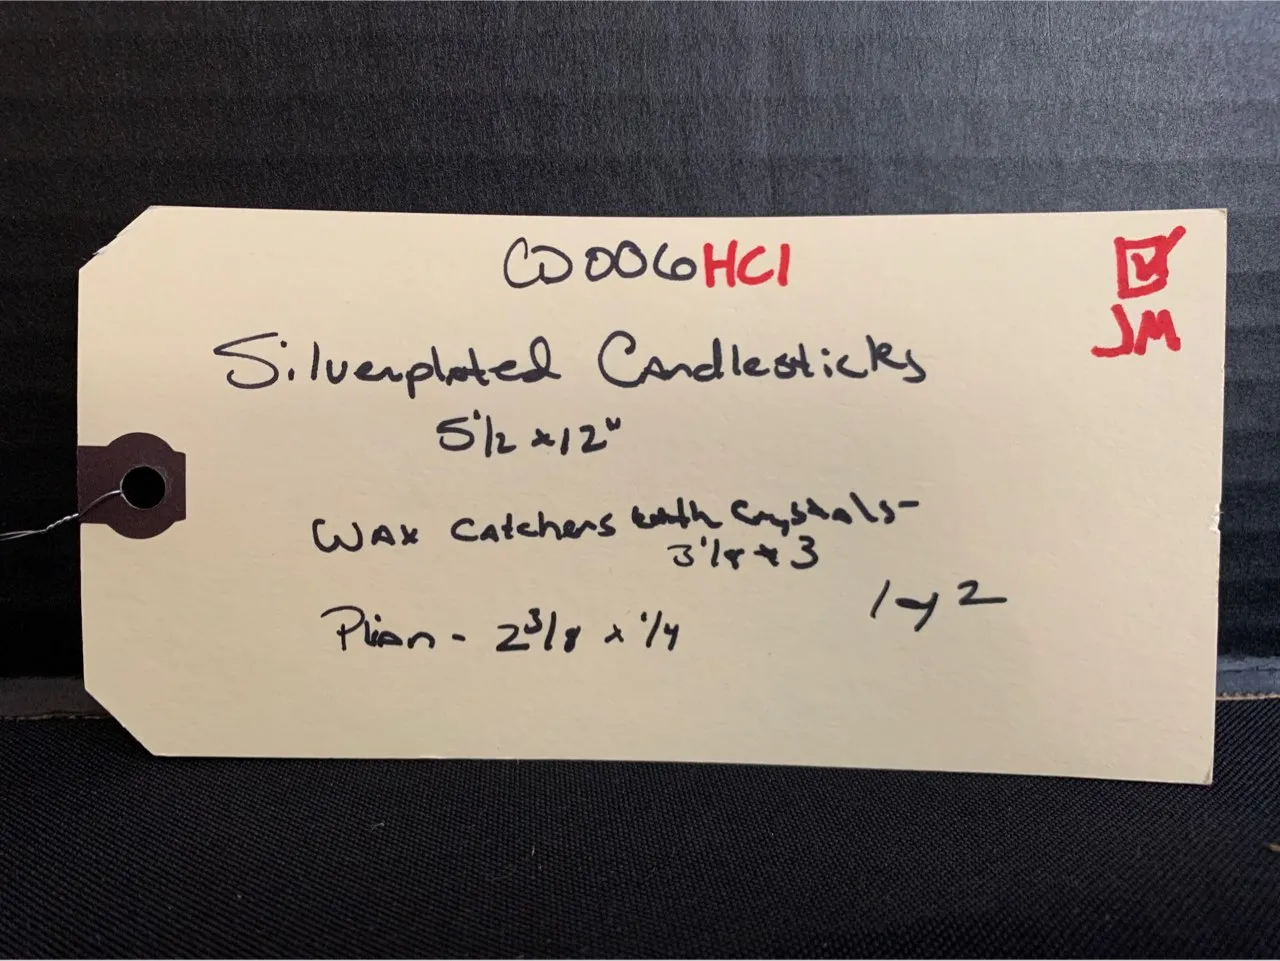 CD006HC1
JM
Silverplated Candlesticks
5 1/2 x 12"
Wax catchers with Crystals-
3 1/8 x 3
1 of 2
Plian - 2 3/8 x 1/4